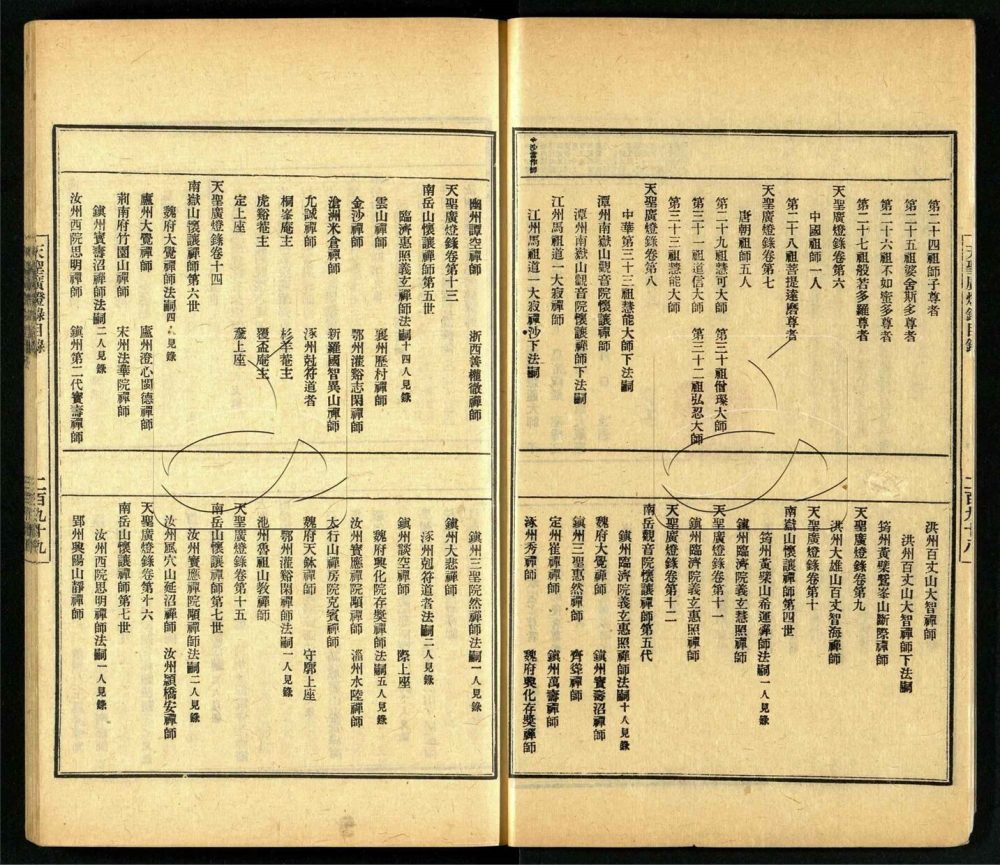 天聖廣燈錄目錄
二百九十八
第二十四祖師子尊者
第二十五祖婆舍斯多尊者
第二十六祖不如蜜多尊者
第二十七祖般若多羅尊者
天聖廣燈錄卷第六
中國祖師一人
第二十八祖菩提達磨尊者
天聖廣燈錄卷第七
唐朝祖師五人
第二十九祖慧可大師　第三十祖僧璨大師
第三十一祖道信大師　第三十二祖弘忍大師
第三十三祖慧能大師
天聖廣燈錄卷第八
中華第三十三祖慧能大師下法嗣
潭州南嶽山觀音院懷讓禪師
潭州南嶽山觀音院懷讓禪師下法嗣
江州馬祖道一大寂禪師
江州馬祖道一大寂禪沙下法嗣
洪州百丈山大智禪師
洪州百丈山大智禪師下法嗣
筠州黃檗鷲峯山斷際禪師
天聖廣燈錄卷第九
洪州大雄山百丈智海禪師
天聖廣燈錄卷第十
南嶽山懷讓禪師第四世
筠州黃檗山希運禪師法嗣一人見錄
鎮州臨濟院義玄慧照禪師
天聖廣燈錄卷第十一
鎮州臨濟院義玄惠照禪師
天聖廣燈錄卷第十二
南岳觀音院懷讓禪師第五代
鎮州臨濟院義玄惠照禪師法嗣十人見錄
魏府大覺禪師　鎮州寶壽沼禪師
鎮州三聖惠然禪師　齊聳禪師
定州崔禪師　鎮州萬壽禪師
涿州秀禪師　魏府興化存獎禪師
幽州譚空禪師　浙西善權徹禪師
天聖廣燈錄卷第十三
南岳山懷讓禪師第五世
臨濟惠照義玄禪師法嗣十四人見錄
雲山禪師　襄州歷村禪師
金沙禪師　鄂州灌谿志閑禪師
滄洲米倉禪師　新羅國智異山禪師
允誠禪師　涿州尅符道者
桐峯庵主　杉羊菴主
虎谿菴主　覆盃庵主
定上座　奯上座
天聖廣燈錄卷十四
南嶽山懷讓禪師第六世
魏府大覺禪師法嗣四人見錄
廬州大覺禪師　廬州澄心閩德禪師
荊南府竹園山禪師　宋州法華院禪師
鎮州寶壽沼禪師法嗣二人見錄
汝州西院思明禪師　鎮州第二代寶壽禪師
鎮州三聖院然禪師法嗣一人見錄
鎮州大悲禪師
涿州尅符道者法嗣二人見錄
鎮州談空禪師　際上座
魏府興化院存獎禪師法嗣五人見錄
汝州寶應禪院顒禪師　淄州水陸禪師
太行山禪房院克賓禪師
魏府天鉢禪師　守廓上座
鄂州灌谿閑禪師法嗣一人見錄
池州魯祖山教禪師
天聖廣燈錄卷第十五
南岳山懷讓禪師第七世
汝州寶應禪院顒禪師法嗣二人見錄
汝州風穴山延沼禪師　汝州頴橋安禪師
天聖廣燈錄卷第十六
南岳山懷讓禪師第七世
汝州西院思明禪師法嗣一人見錄
郢州興陽山靜禪師
天聖廣燈錄目錄
二百九十九